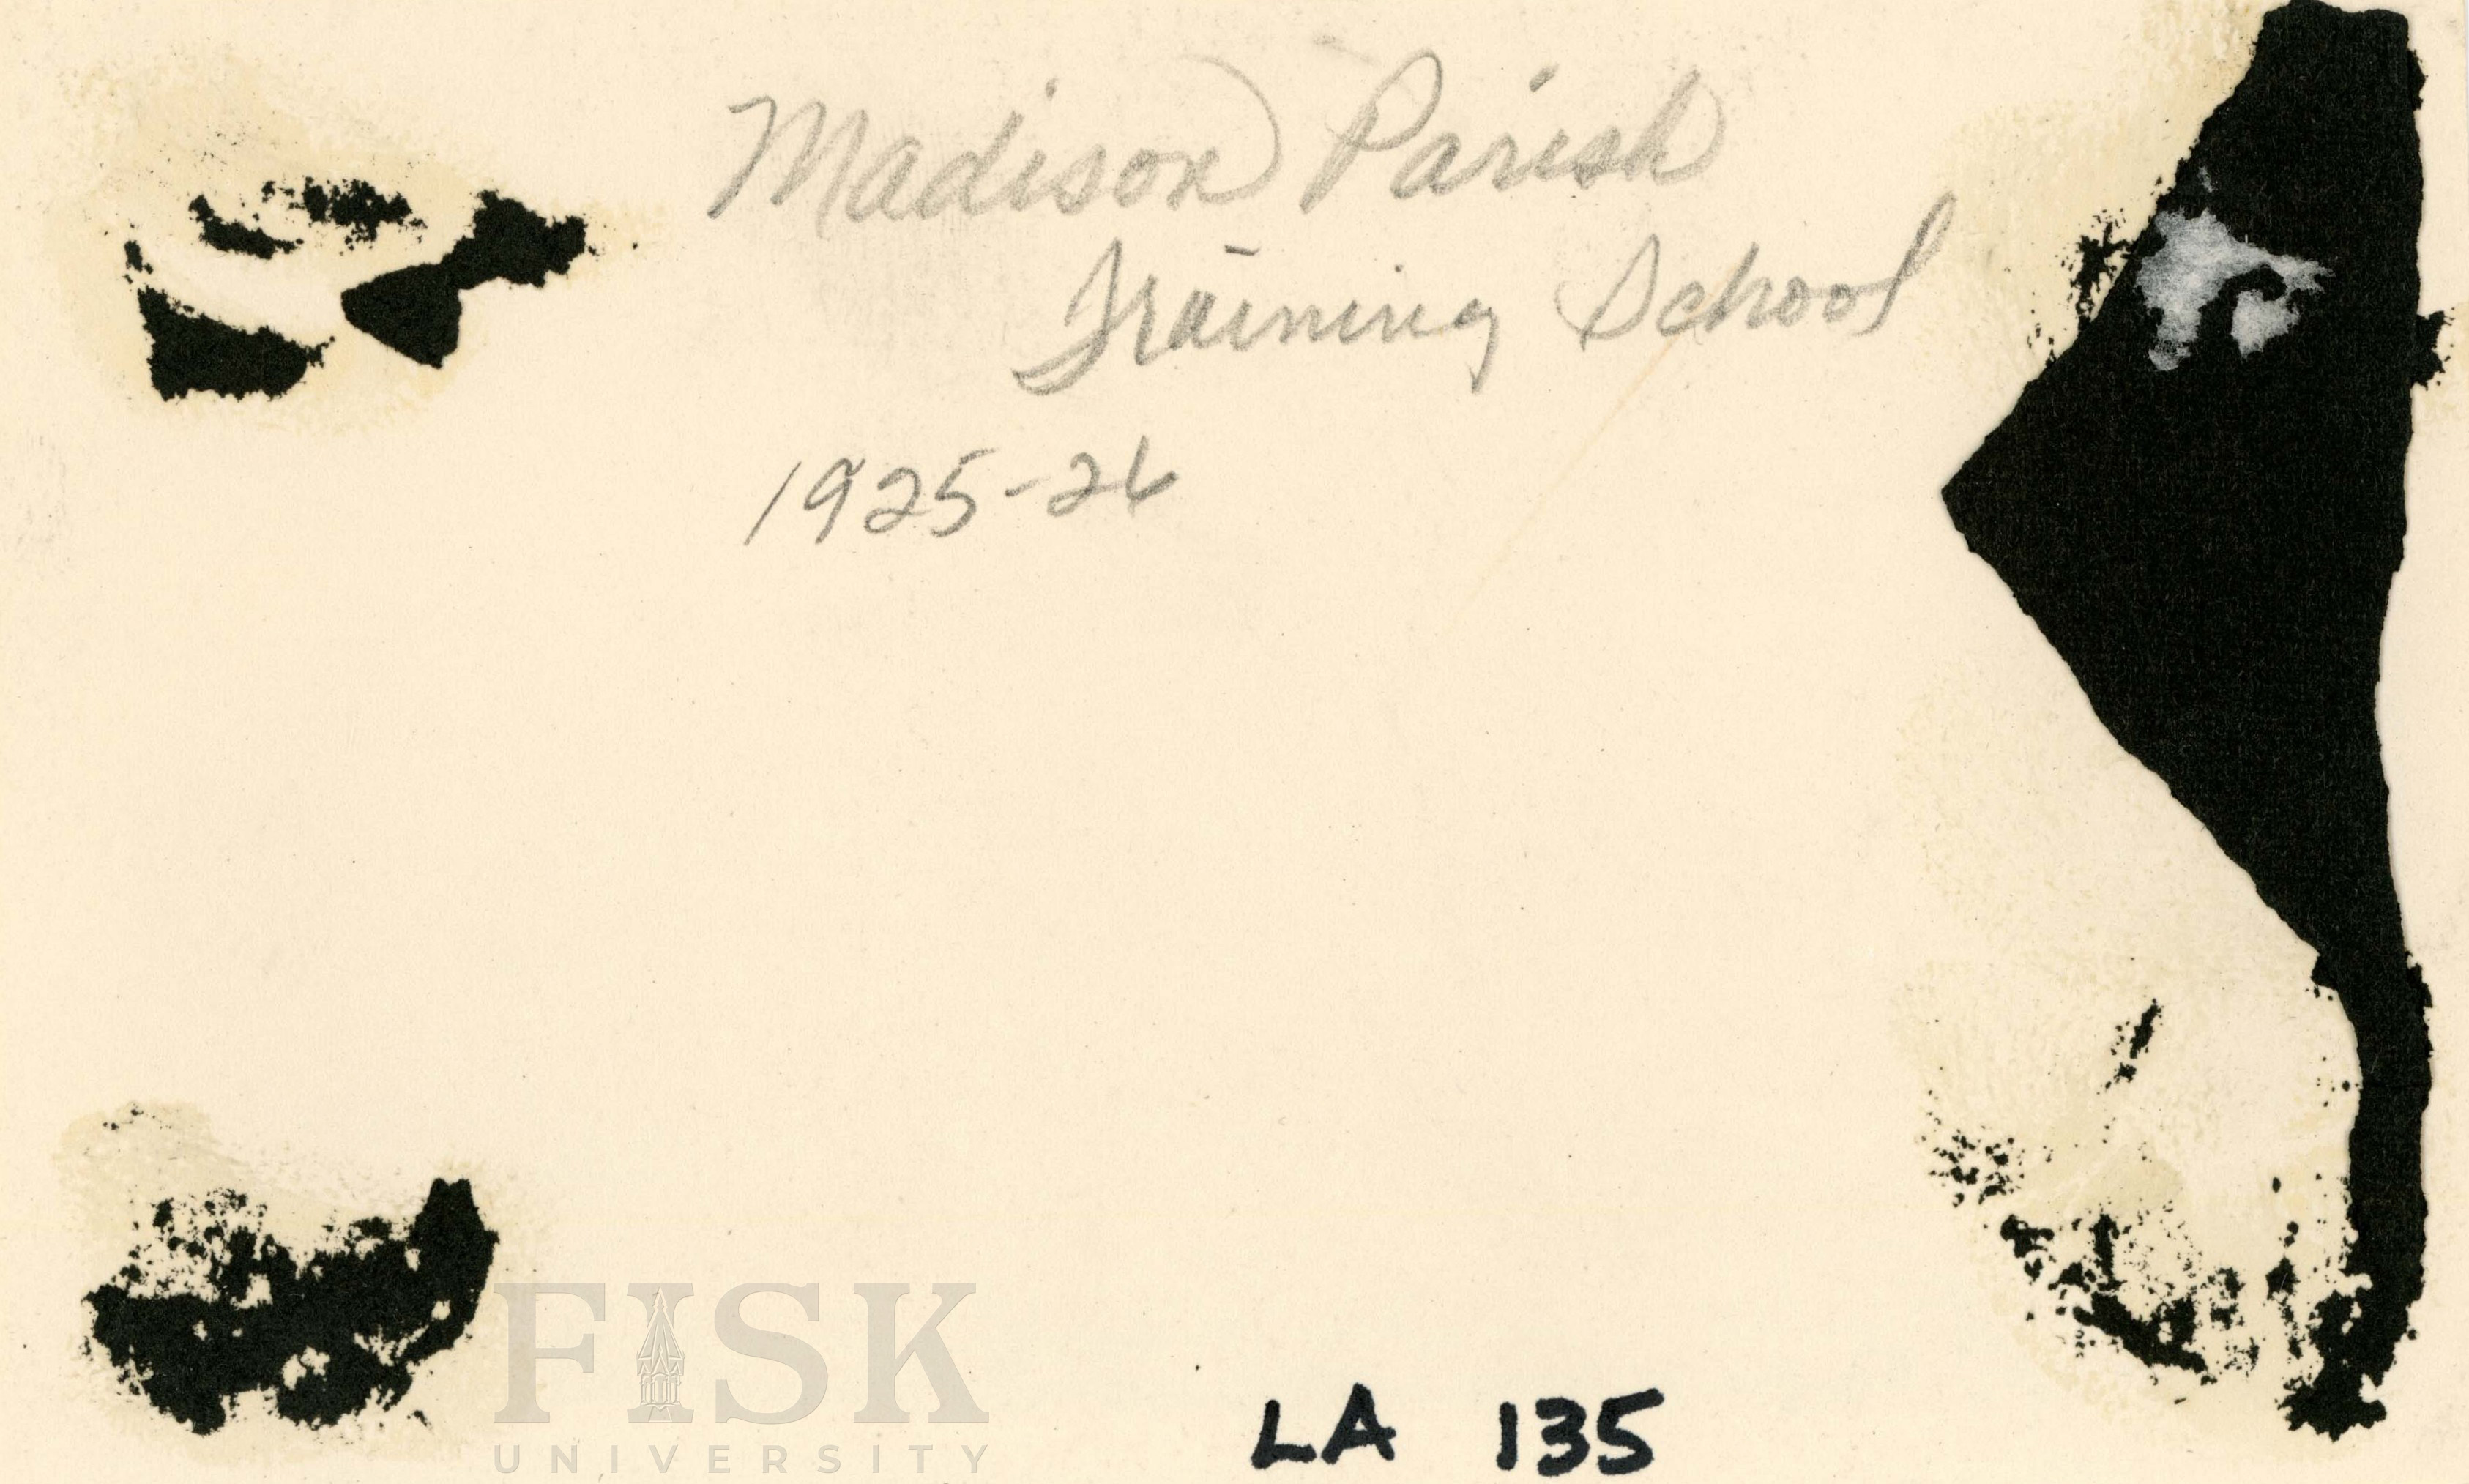 Madison Parish
Training School
1925-26
FISK
UNIVERSITY
LA 135